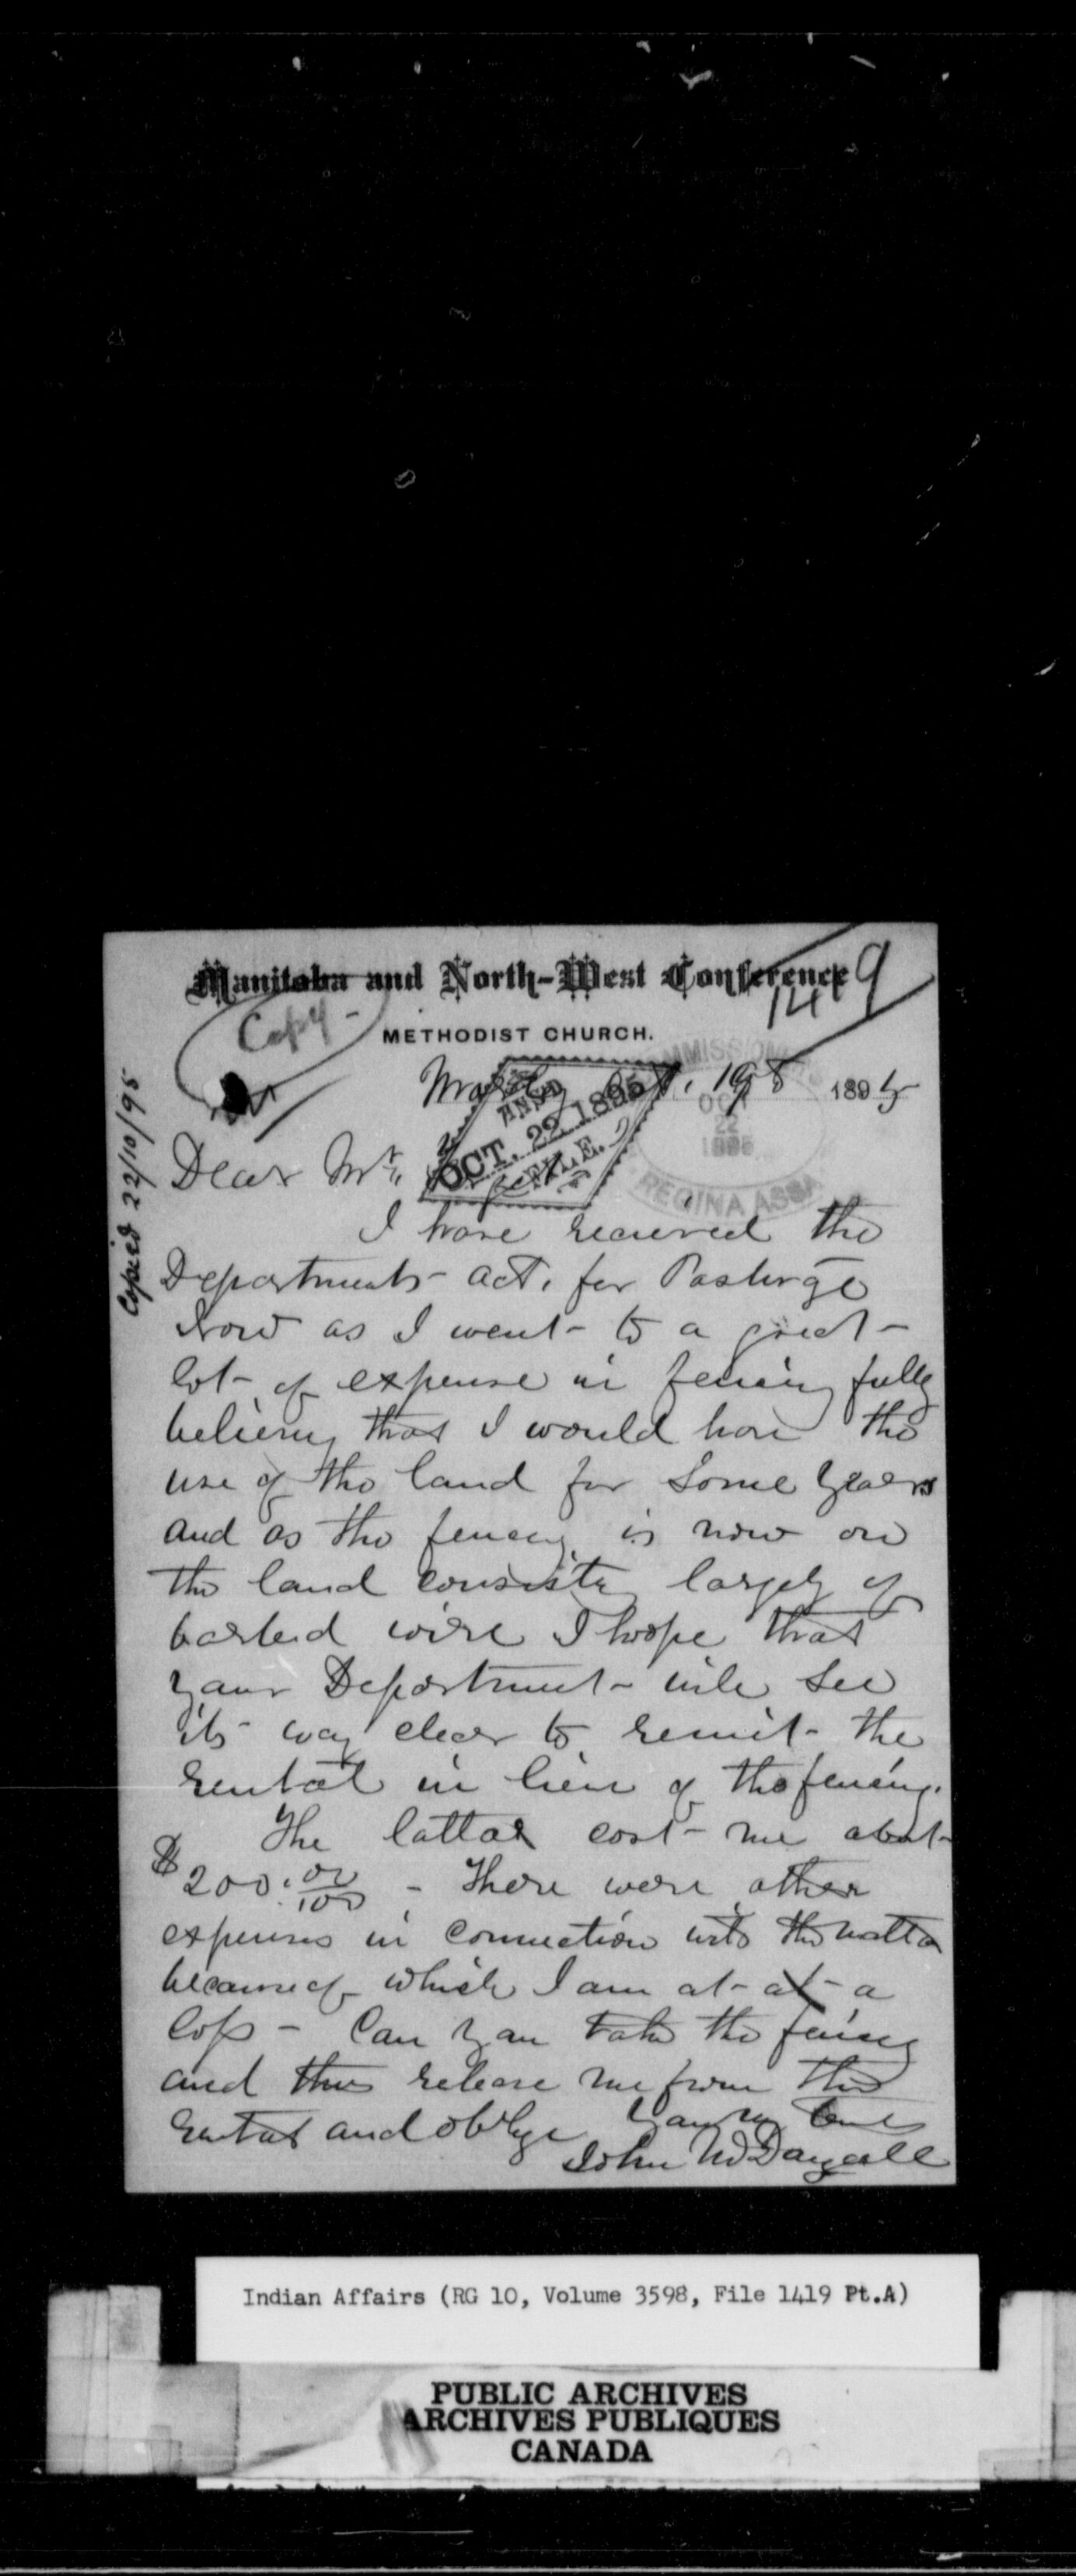 Manitoba and North-West Conference
1419
Copy -
METHODIST CHURCH.
Morley Oct. 19th 1895
COMMISSIONER
OCT
22
1895
REGINA ASSA
ANSD
OCT. 22 1895
FILE.
Copied 22/10/95
Dear Mr.
I have received the
Departments - act. for Pasturage
Now as I went - to a great -
lot - of expense in fencing fully
believing that I would have the
use of the land for some years
and as the fencing is now on
the land consisting largely of
barbed wire I hope that
your Department - will see
its - way clear to remit - the
rental in lieu of the fencing.
The latter cost - me about -
$200.00/100 - There were other
expenses in connection with the matter
because of which I am at - at - a
loss - Can you take the fencing
and thus release me from the
rental and oblige Yours truly
John McDougall
Indian Affairs (RG 10, Volume 3598, File 1419 Pt.A)
PUBLIC ARCHIVES
ARCHIVES PUBLIQUES
CANADA